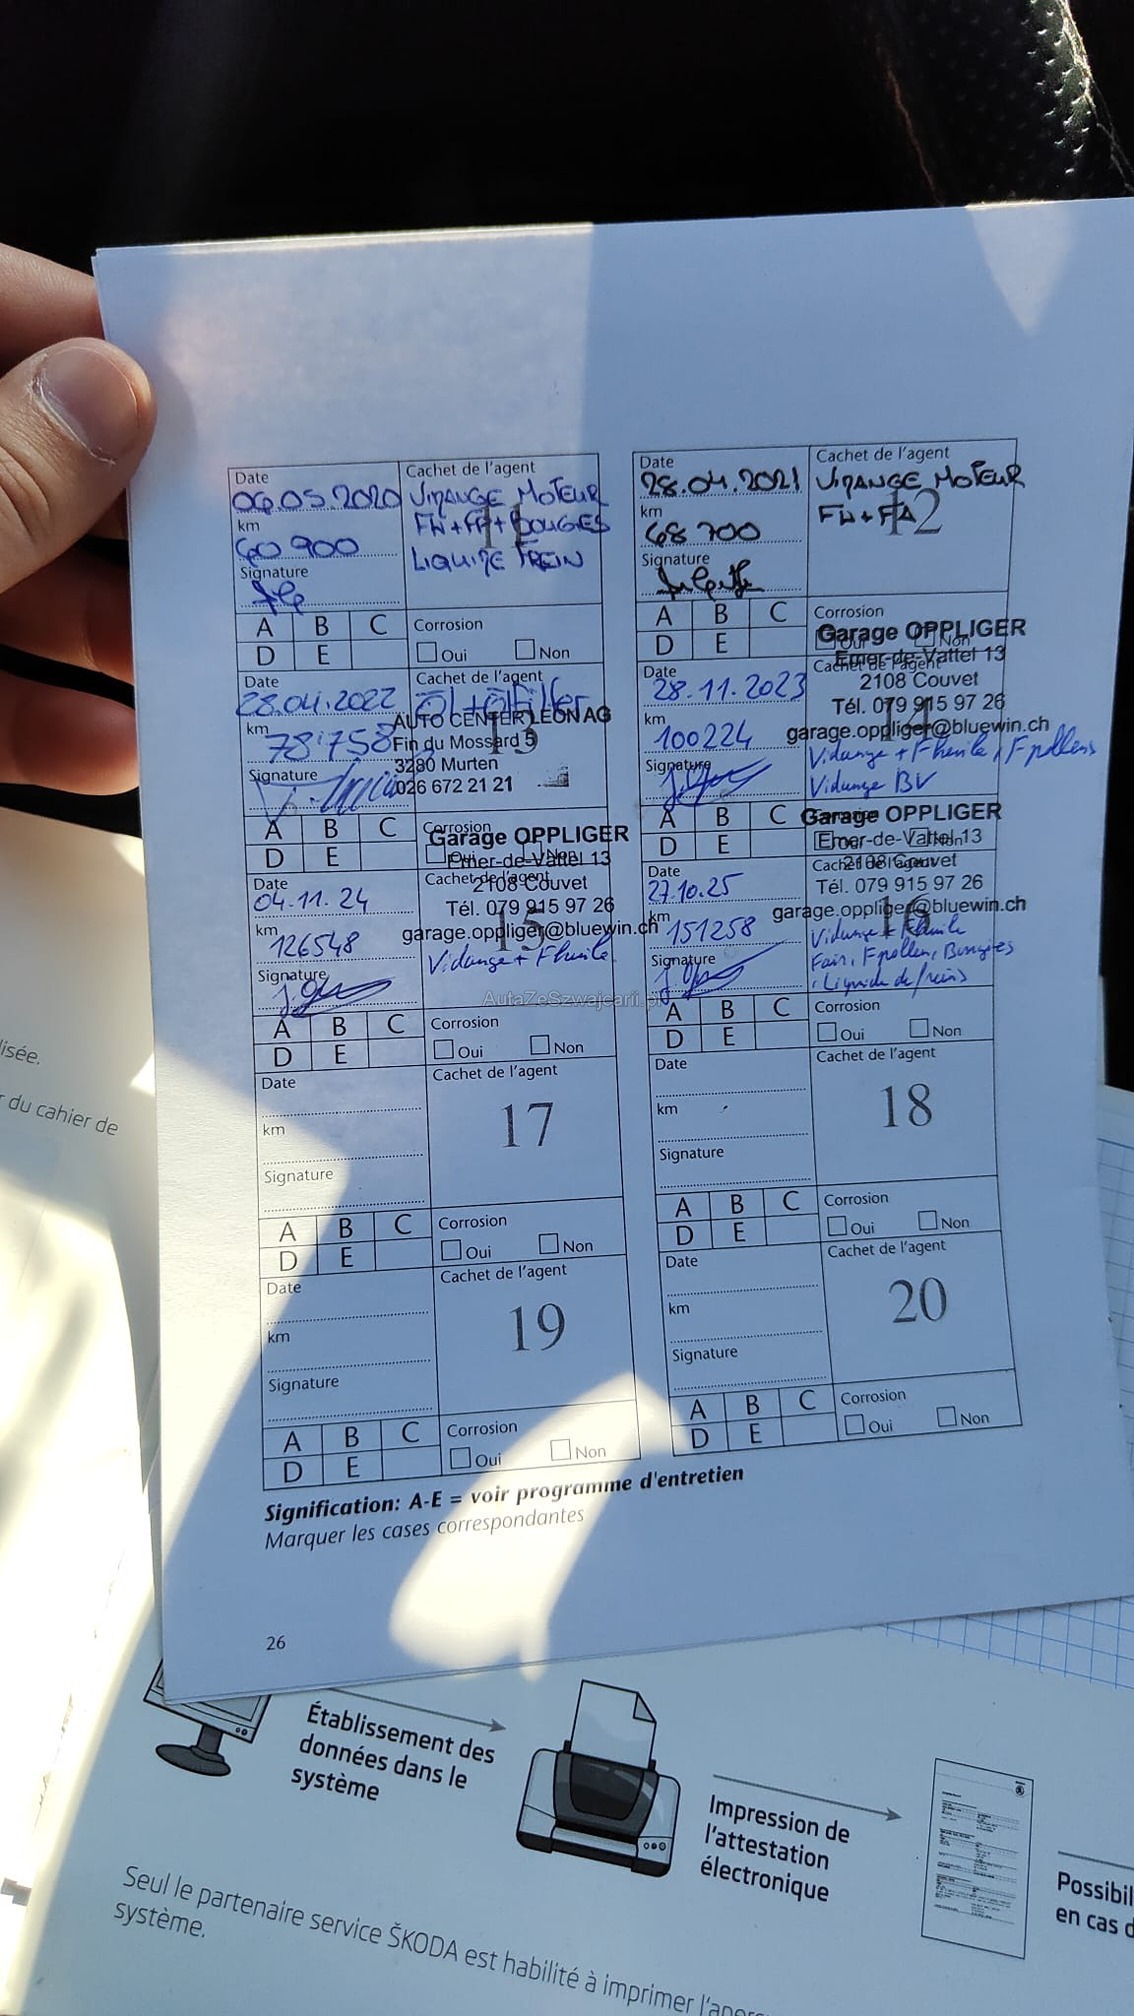 Date
06.05.2020
km
60 900
Signature
Cachet de l'agent
VIDANGE MOTEUR
FH+FP+BOUGIES
LIQUIDE FREIN
11
A B C
D E
Corrosion
Oui Non
Date
28.04.2021
km
68 700
Signature
Cachet de l'agent
VIDANGE MOTEUR
FH+FA
12
A B C
D E
Corrosion
Oui Non
Date
28.04.2022
km
78'758
Signature
Cachet de l'agent
Öl+Ölfilter
13
AUTO CENTER LEON AG
Fin du Mossard 5
3280 Murten
026 672 21 21
A B C
D E
Corrosion
Oui Non
Garage OPPLIGER
Emer-de-Vattel 13
2108 Couvet
Tél. 079 915 97 26
garage.oppliger@bluewin.ch
Date
28.11.2023
km
100224
Signature
Cachet de l'agent
14
Vidange + F huile, F pollens
Vidange BV
A B C
D E
Corrosion
Non
Garage OPPLIGER
Emer-de-Vattel 13
2108 Couvet
Tél. 079 915 97 26
garage.oppliger@bluewin.ch
Date
04.11.24
km
126548
Signature
Cachet de l'agent
15
Vidange + F huile
A B C
D E
Corrosion
Oui Non
Garage OPPLIGER
Emer-de-Vattel 13
2108 Couvet
Tél. 079 915 97 26
garage.oppliger@bluewin.ch
Date
27.10.25
km
151258
Signature
Cachet de l'agent
16
Vidange + F huile
F air, F pollen, Bougies
, Liquide de freins
AutaZeSzwajcarii.pl
A B C
D E
Corrosion
Oui Non
Date
km
Signature
Cachet de l'agent
17
A B C
D E
Corrosion
Oui Non
Date
km
Signature
Cachet de l'agent
18
A B C
D E
Corrosion
Oui Non
Date
km
Signature
Cachet de l'agent
19
A B C
D E
Corrosion
Oui Non
Date
km
Signature
Cachet de l'agent
20
A B C
D E
Corrosion
Oui Non
Signification: A-E = voir programme d'entretien
Marquer les cases correspondantes
26
lisée.
r du cahier de
Établissement des
données dans le
système
Impression de
l'attestation
électronique
Possibil
en cas d
Seul le partenaire service ŠKODA est habilité à imprimer l'aper
système.